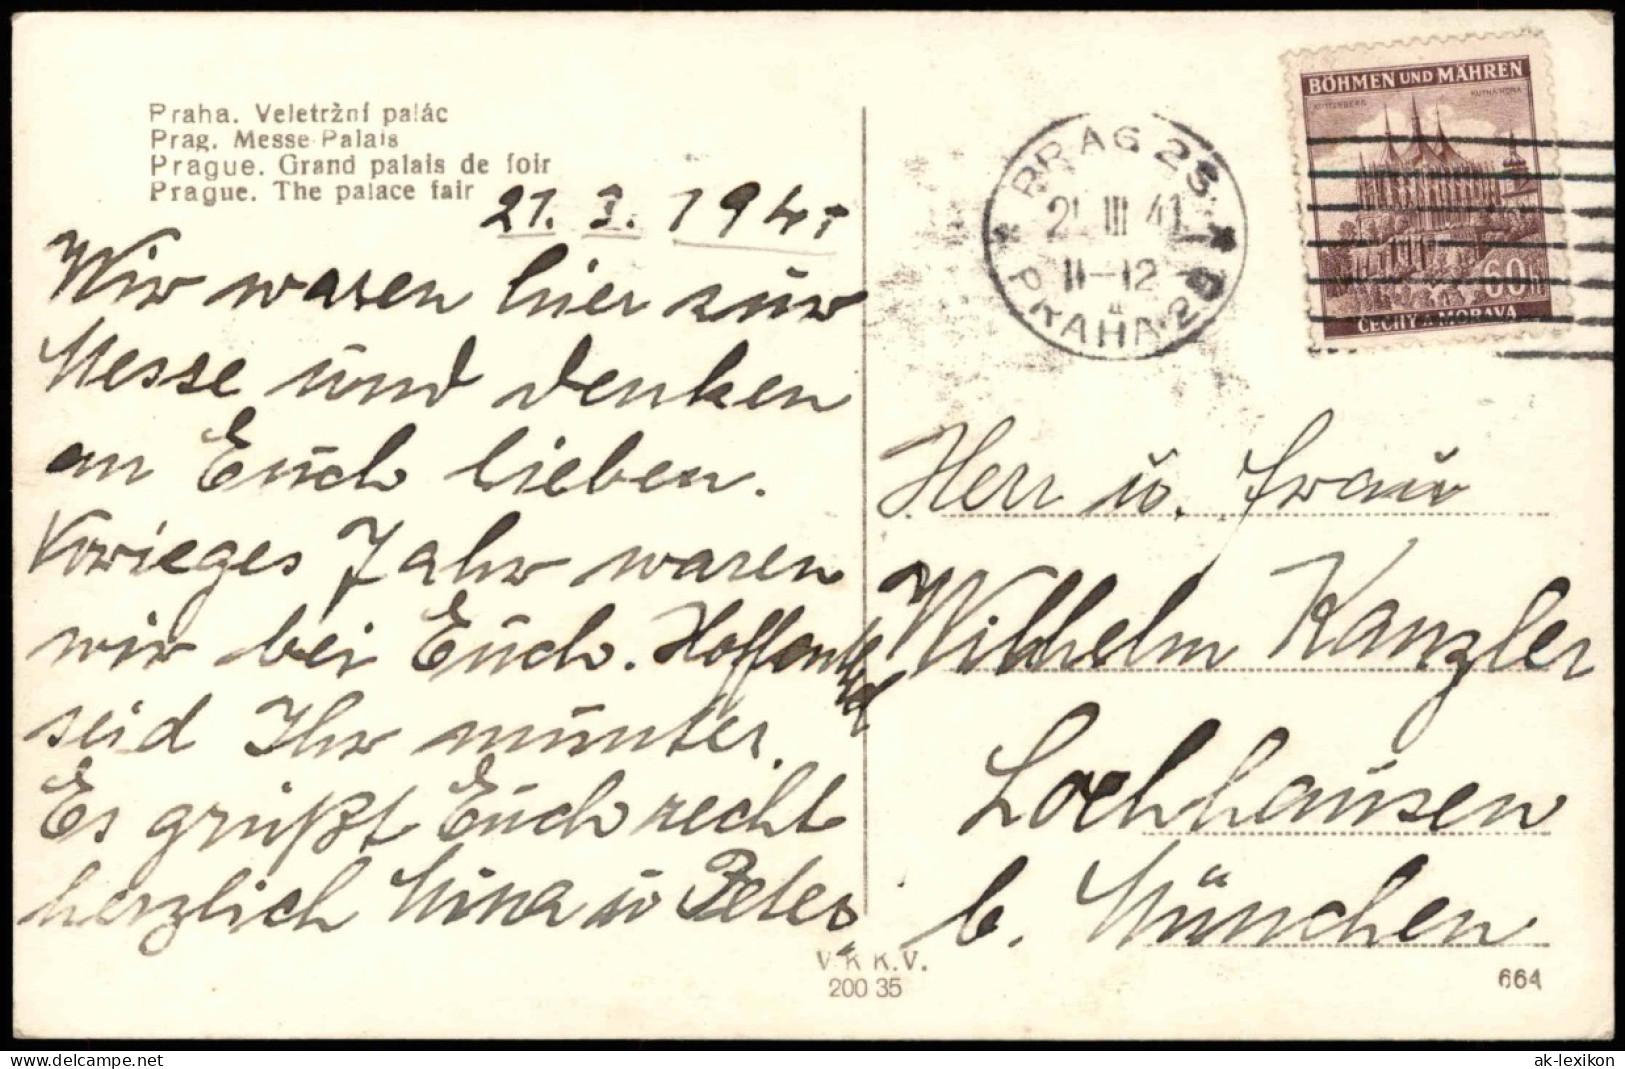 Praha. Veletržní palác
Prag. Messe-Palais
Prague. Grand palais de foir
Prague. The palace fair
21. 3. 1941
Wir waren hier zur
Messe und denken
an Euch lieben.
Vorieges Jahr waren
wir bei Euch. Hoffentl
seid Ihr munter.
Es grüßt Euch recht
herzlich Mina u Peter
V.K K.V.
200 35
PRAG 25
21 III 41
11-12
PRAHA 25
BÖHMEN UND MÄHREN
KUTTENBERG KUTNÁ HORA
60h
ČECHY A MORAVA
Herr u. Frau
Wilhelm Kanzler
Lochhausen
b. München
664
ak-lexikon